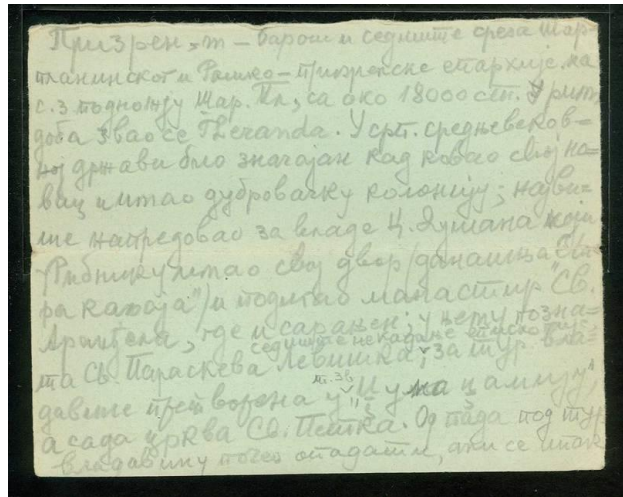 Призрен, -т – варош и седиште среза Шар-
планинског и Рашко-призренске епархије, на
с.з подножју Шар. Пл, са око 18000 ст. У рим.
доба звао се Theranda. У срп. средњевеков=
ној држави био значајан кад ковао свој но=
вац и имао дубровачку колонију; најви=
ше напредовао за владе Ц. Душана који
у Рибнику имао свој двор (данашња
") и подигао манастир "Св.
Арангела, где и сарањен; у њему позна=
седиште некадање епископије
та Св. Параскева Љевишка, за тур. вла=
т. зв.
давине претворена у "Џума џамију",
а сада црква Св. Петка. Од тада под тур
владавину почео опадати, али се ипак